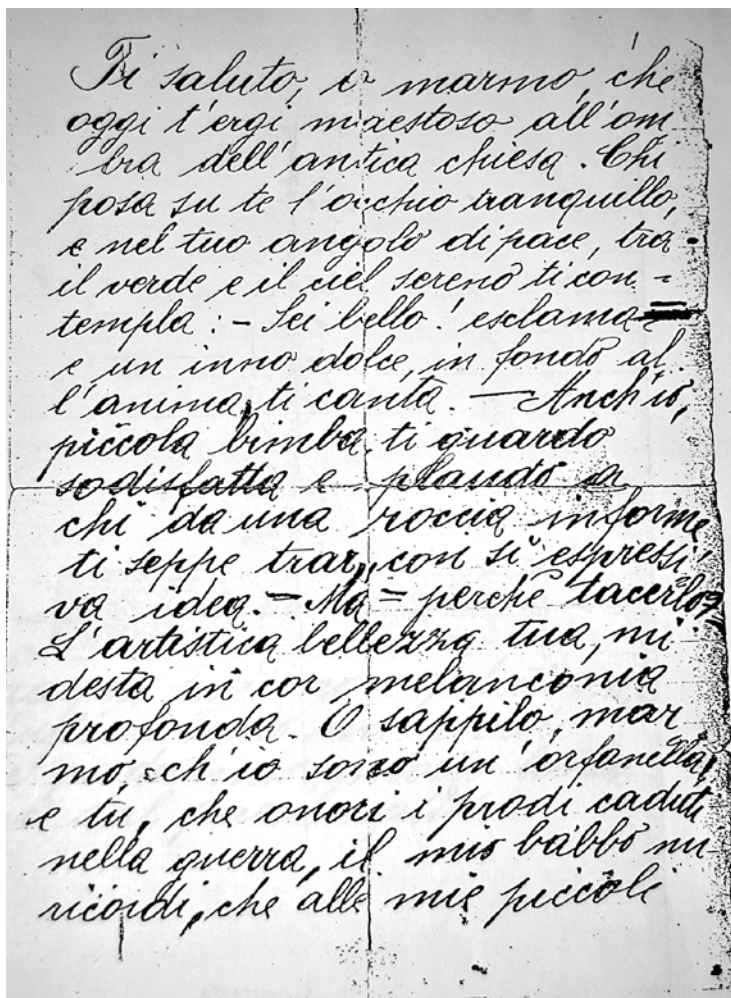 Ti saluto, o marmo, che
oggi t'ergi maestoso all'om
bra dell'antica chiesa. Chi
posa su te l'occhio tranquillo,
e nel tuo angolo di pace, tra
il verde e il ciel sereno ti con=
templa: - Sei bello! esclama
e un inno dolce, in fondo al
l'anima, ti canta. - Anch'io,
piccola bimba, ti guardo
sodisfatta e plaudo a
chi da una roccia informe
ti seppe trar, con sì espressi
va idea. = Ma = perchè tacerlo?
L'artistica bellezza tua, mi
desta in cor melanconia
profonda. O sappilo, mar
mo, = ch'io sono un'orfanella,
e tu, che onori i prodi caduti
nella guerra, il mio babbo mi
ricordi, che alle mie piccole